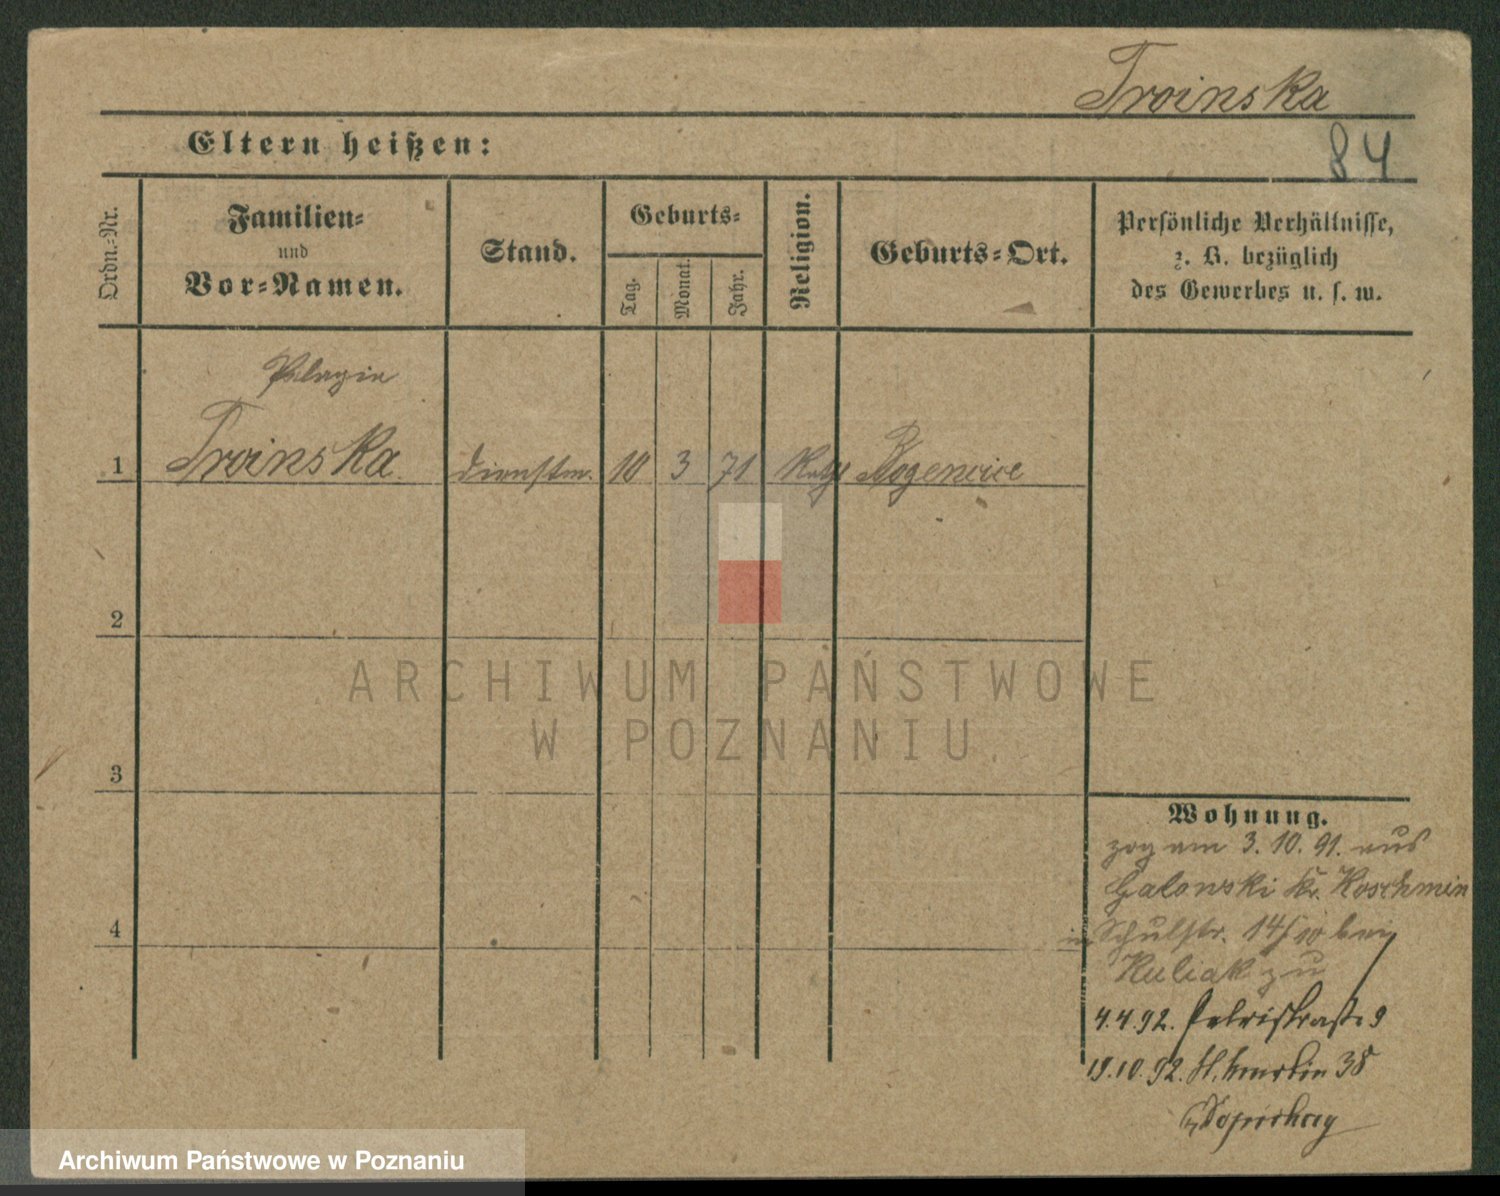 Troinska
Eltern heißen:
84
Ordn.-Nr.
Familien-
und
Vor-Namen.
Stand.
Geburts-
Tag.
Monat.
Jahr.
Religion.
Geburts-Ort.
Persönliche Verhältnisse,
z. B. bezüglich
des Gewerbes u. s. w.
Pelagia
1 Troinska dienstm. 10 3 71 Kath
2
3
4
ARCHIWUM PAŃSTWOWE
W POZNANIU
Wohnung.
zog am 3.10.91. aus
Galonski Kr. Koschmin
in Schulstr. 14/10 bei
Kubiak zu
4.4.92. Petristraße 9
19.10.92. St. Martin 38
Archiwum Państwowe w Poznaniu